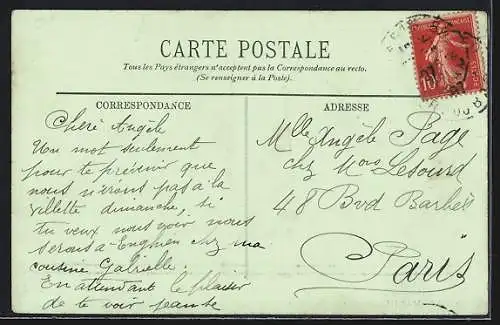 CARTE POSTALE
Tous les Pays étrangers n'acceptent pas la Correspondance au recto.
(Se renseigner à la Poste).
CORRESPONDANCE
Chère Angèle
Un mot seulement
pour te prévenir que
nous n'irons pas à la
Villette dimanche, si
tu veux nous voir nous
serons à Enghien chez ma
cousine Gabrielle.
En attendant le plaisir
de te voir
ADRESSE
Mlle Angèle Page
chez Mme Lesourd
48 Bvd Barbès
Paris
10